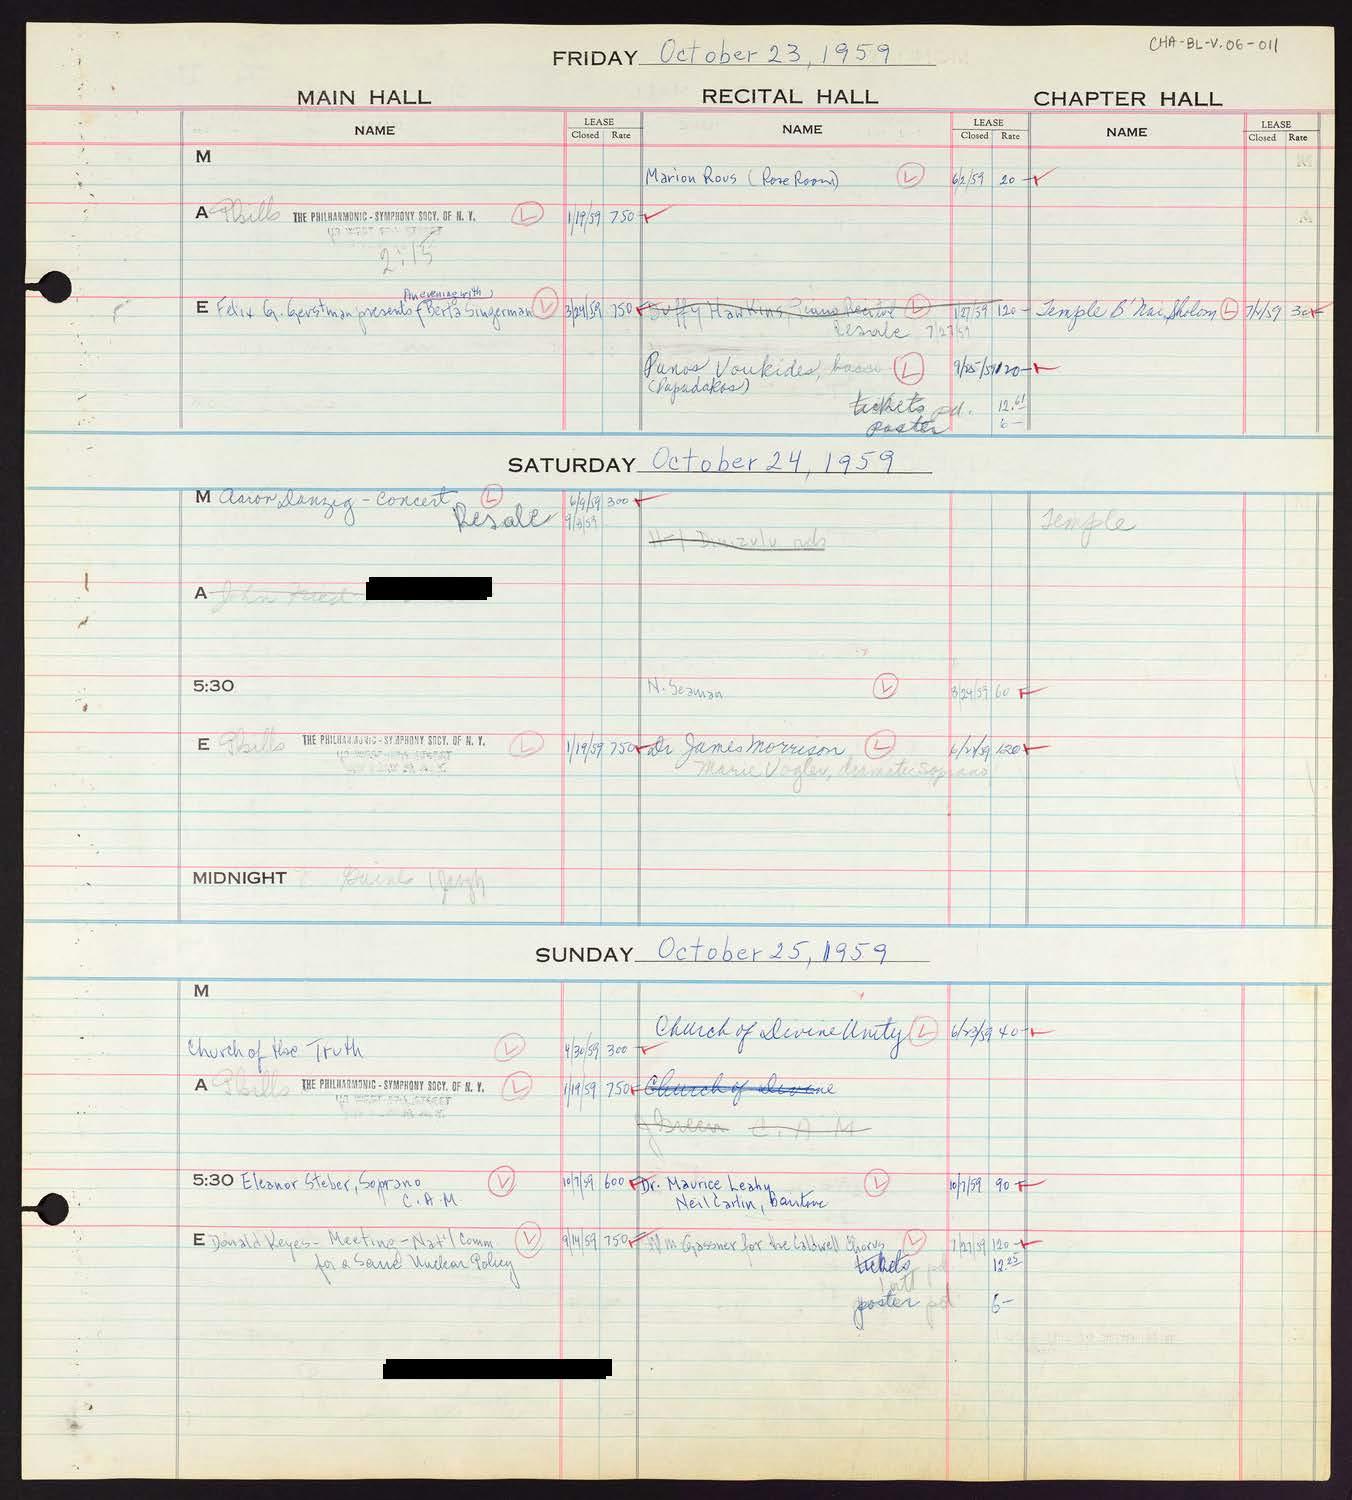 CHA-BL-V.06-011
FRIDAY October 23, 1959
MAIN HALL RECITAL HALL CHAPTER HALL
NAME LEASE Closed Rate NAME LEASE Closed Rate NAME LEASE Closed Rate
M
Marion Rous (Rose Room) L 6/2/59 20
A Phills THE PHILHARMONIC-SYMPHONY SOCY. OF N. Y. L 1/19/59 750
2:15
An evening with
E Felix G. Gerstman presents Berta Singerman L 3/24/59 750 Duffy Hawkins, Piano Recital L 1/27/59 120 Temple B'Nai Sholom L 30
Resale 7/27/59
Panos Voukides, basso L 9/25/59 120
(Papadakos)
tickets pd. 12.61
poster 6-
SATURDAY October 24, 1959
M Aaron Danzig - Concert L 6/9/59 300
Resale 9/3/59
Temple
A John
5:30 N. Seaman L 60
E Phills THE PHILHARMONIC-SYMPHONY SOCY. OF N. Y. L 1/19/59 750 Dr James Morrison L 120
Marie Vogler, dramatic soprano
MIDNIGHT
SUNDAY October 25, 1959
M
Church of Divine Unity L 6/23/59 40
Church of the Truth L 4/30/59 300
A Phills THE PHILHARMONIC-SYMPHONY SOCY. OF N. Y. L 1/19/59 750 Church of Divine
C. A M
5:30 Eleanor Steber, Soprano L 10/7/59 600 Dr. Maurice Leahy L 10/7/59 90
C. A. M Neil Carlin, Baritone
E Donald Keyes - Meeting - Nat'l Comm L 9/14/59 750 Wm Gassner for the Caldwell Chorus L 7/27/59 120
for a Sane Nuclear Policy tickets 12.25
poster pd 6-